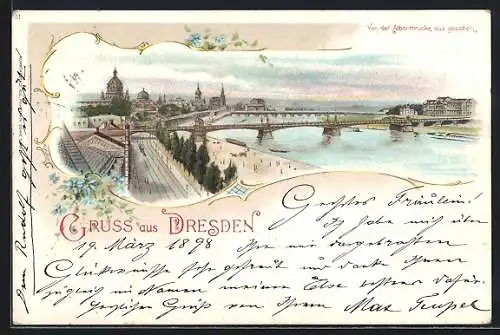 Von der Albertbrücke aus gesehen.
Gruss aus Dresden
Geehrtes Fräulein!
Ich habe mich über
19. März 1898 Ihre mir dargebrachten
Glückwünsche sehr gefreut und danke Ihnen
zugleich im Namen meiner Else bestens dafür.
Herzlichen Gruß von Ihrem Max